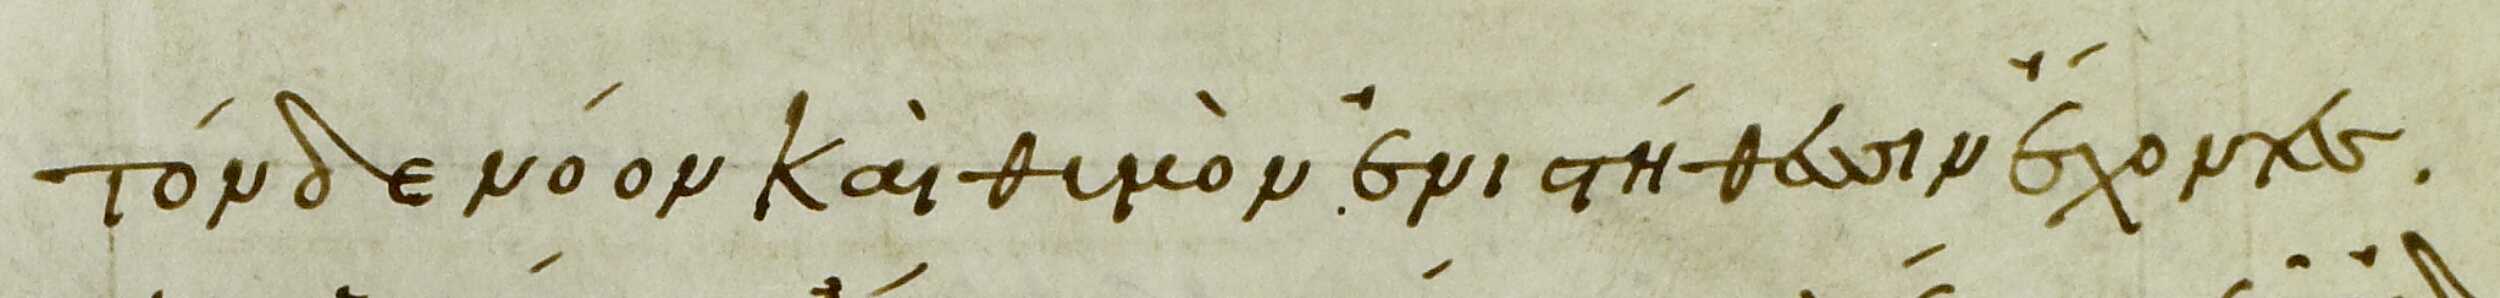 τόνδε νόον καὶ θυμὸν ἐνι στήθεσσιν ἔχοντες.